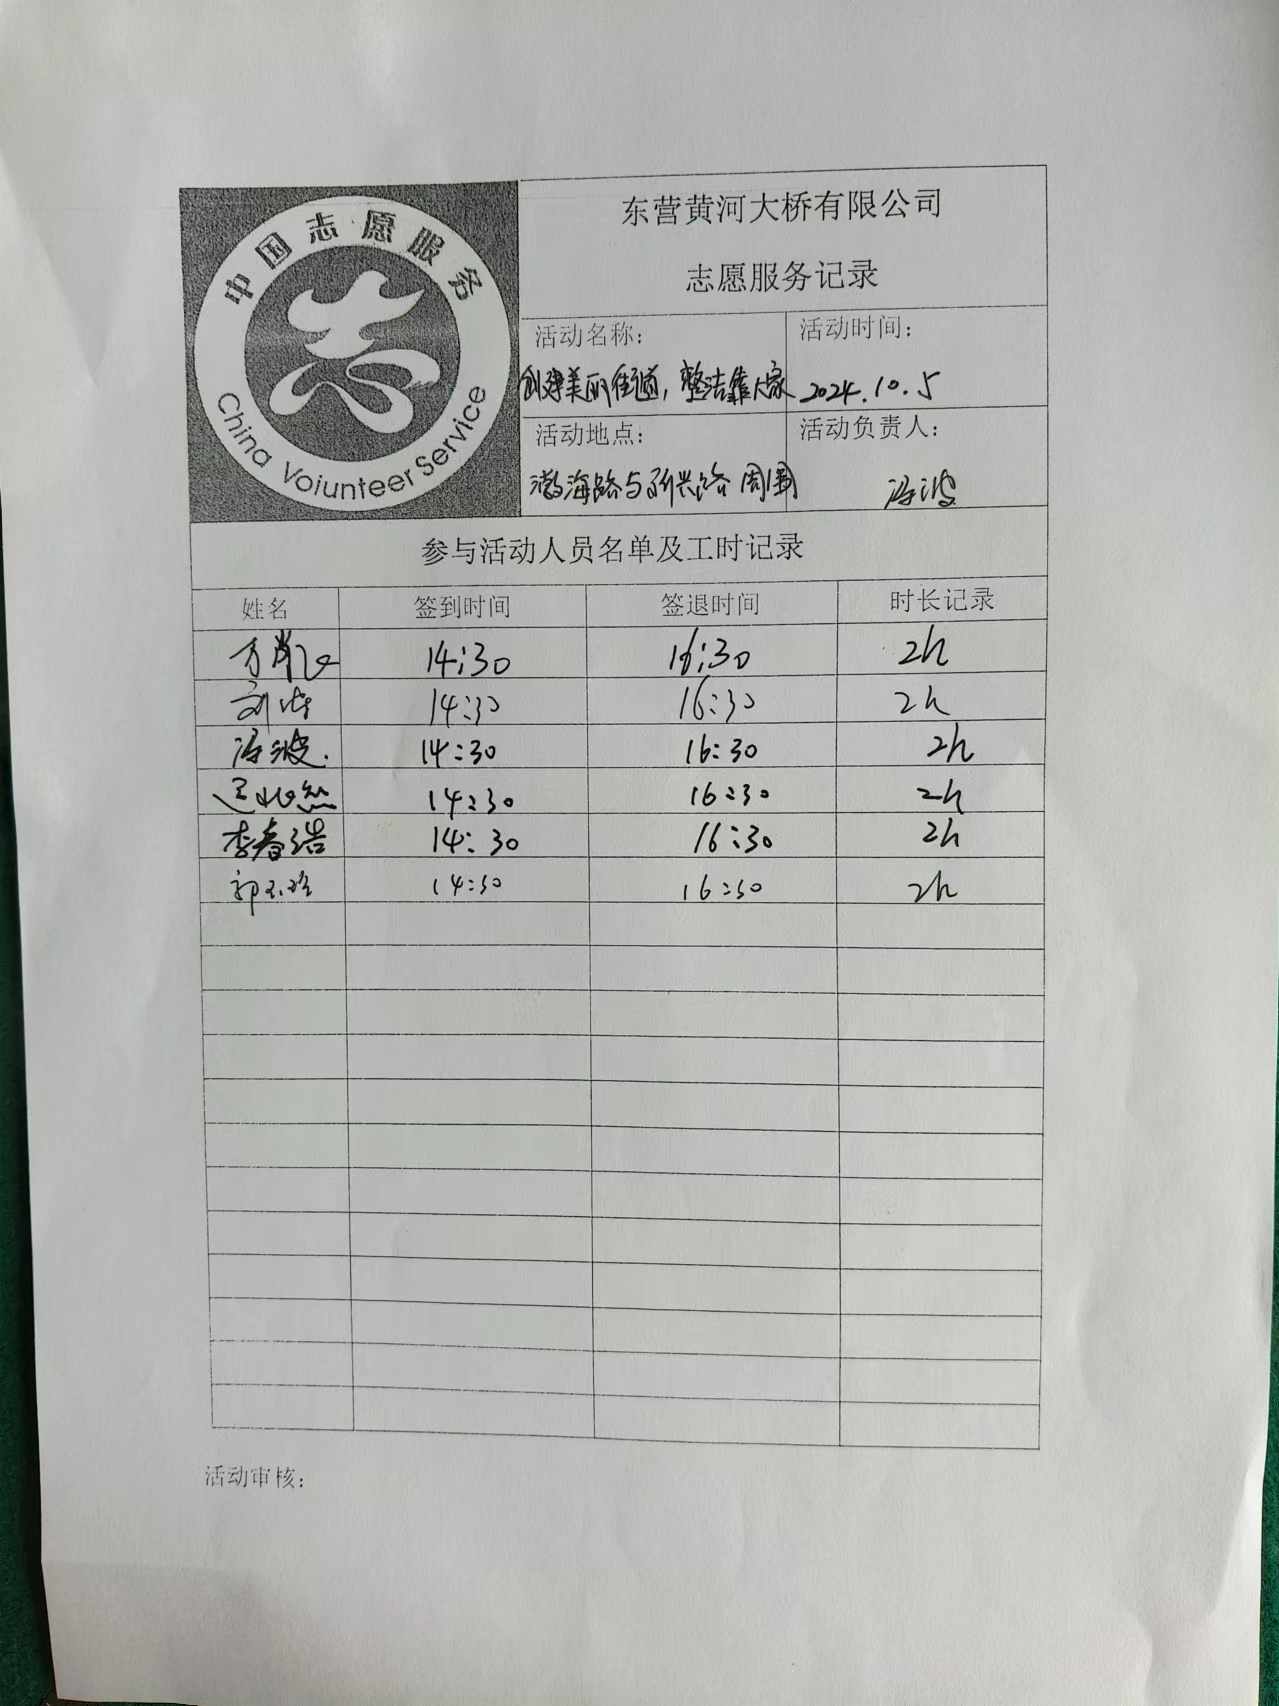 中国志愿服务
志
China Voiunteer Service
东营黄河大桥有限公司
志愿服务记录
活动名称:
创建美丽街道,整洁靠大家
活动时间:
2024.10.5
活动地点:
渤海路与新兴路周围
活动负责人:
冯波
参与活动人员名单及工时记录
姓名 签到时间 签退时间 时长记录
14:30 16:30 2h
刘 14:30 16:30 2h
冯波. 14:30 16:30 2h
14:30 16:30 2h
李春浩 14:30 16:30 2h
郭 14:30 16:30 2h
活动审核: